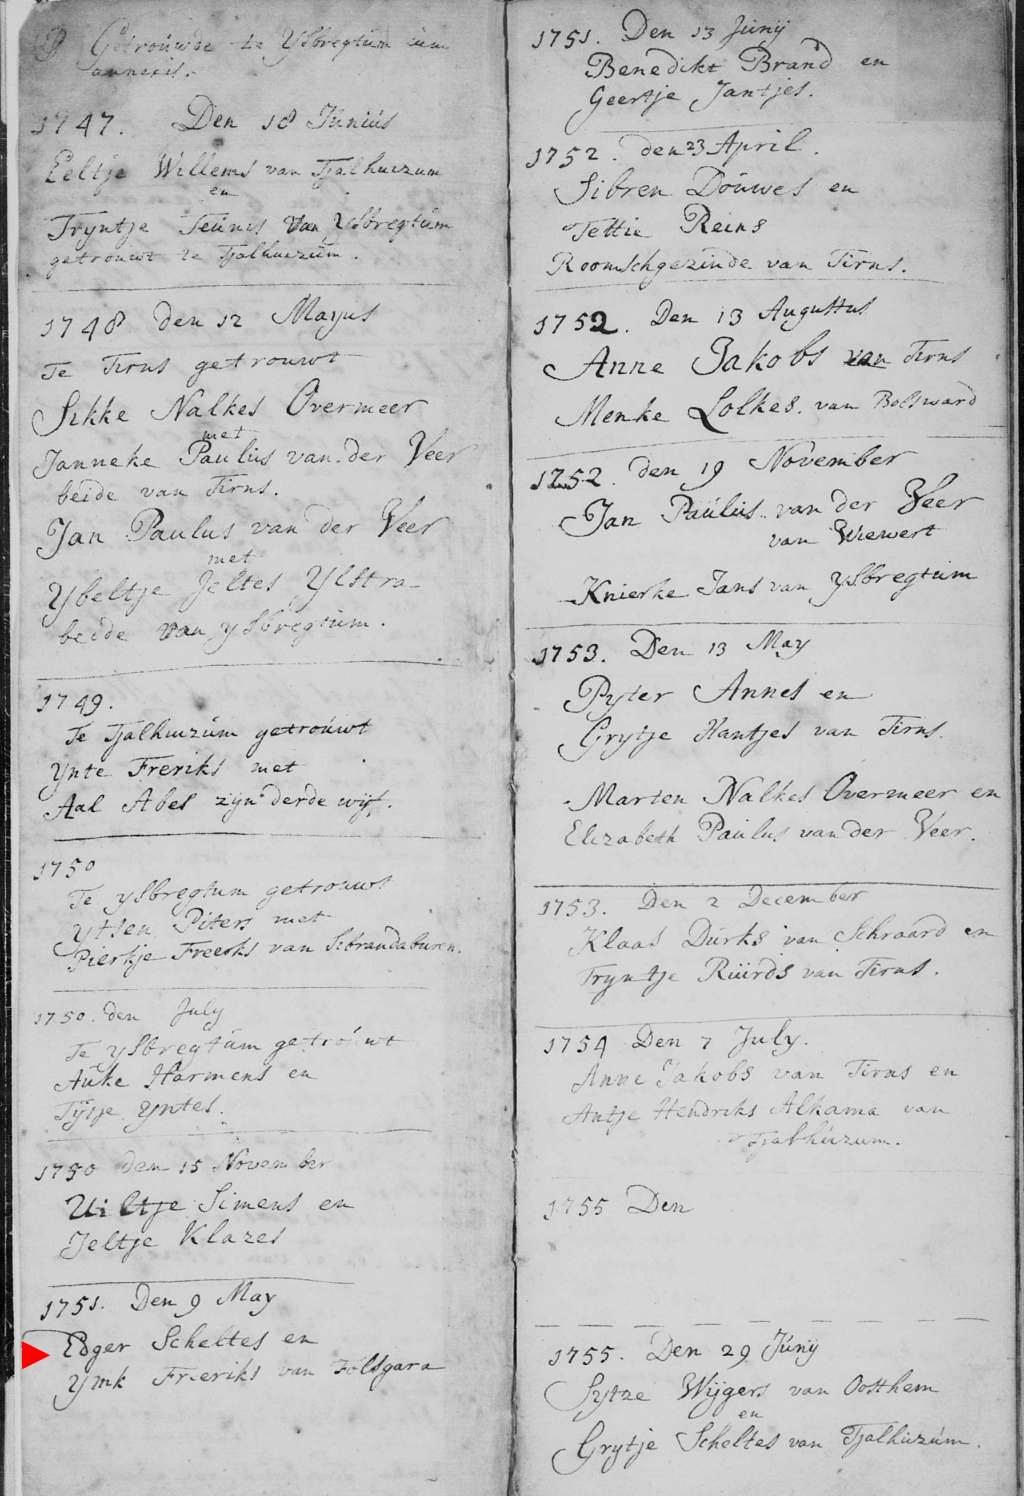 Getrouwde te Ysbregtum cum
annexis.
1747. Den 18 Júniús
Eeltje Willems van Tjalhuizum
en
Tryntje Teúnis van Ysbregtúm
getrouwt te Tjalhuizúm.
1748 den 12 Mayus
Te Tirns getrouwt
Sikke Nalkes Overmeer
met
Janneke Paulús van der Veer
beide van Tirns.
Jan Paulus van der Veer
met
Ybeltje Jeltes Ylstra
beide van ysbregtúm.
1749.
Te Tjalhuizúm getroúwt
Ynte Freriks met
Aal Abes zijn derde wijf.
1750
Te ysbregtum getrouwt
Ytsen Piters met
Pierkje Freerks van Sibrandaburen.
1750. den July
Te ysbregtúm getroúwt
Aúke Harmens en
Tÿtje Yntes.
1750 den 15 November
Uiltje Simens en
Jeltje Klazes
1751. Den 9 May
Edger Scheltes en
Ymk Freeriks van Folsgara
1751. Den 13 Júnÿ
Benedikt Brand en
Geertje Jantjes.
1752. den 23 April.
Sibren Doúwes en
Tettie Reins
Roomschgezinde van Tirns.
1752. Den 13 Augustus
Anne Jakobs van Tirns
Menke Lolkes. van Bolsward
1752. den 19 November
Jan Paúlús van der Veer
van Wiewert
Knierke Jans van Ysbregtúm
1753. Den 13 May
Pyter Annes en
Grytje Hantjes van Tirns.
Marten Nalkes Overmeer en
Elizabeth Paúlus van der Veer.
1753. Den 2 December
Klaas Dúrks van Schraard en
Tryntje Rúúrds van Tirns.
1754 Den 7 July.
Anne Jakobs van Tirns en
Antje Hendriks Alkama van
Tjalhúizum.
1755 Den
1755. Den 29 Júnÿ
Sytze Wijgers van Oosthem
en
Grytje Scheltes van Tjalhúizúm.